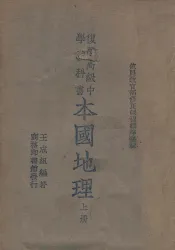 復興高級中
學教科書
本國地理
上冊
王成組編著
商務印書館發行